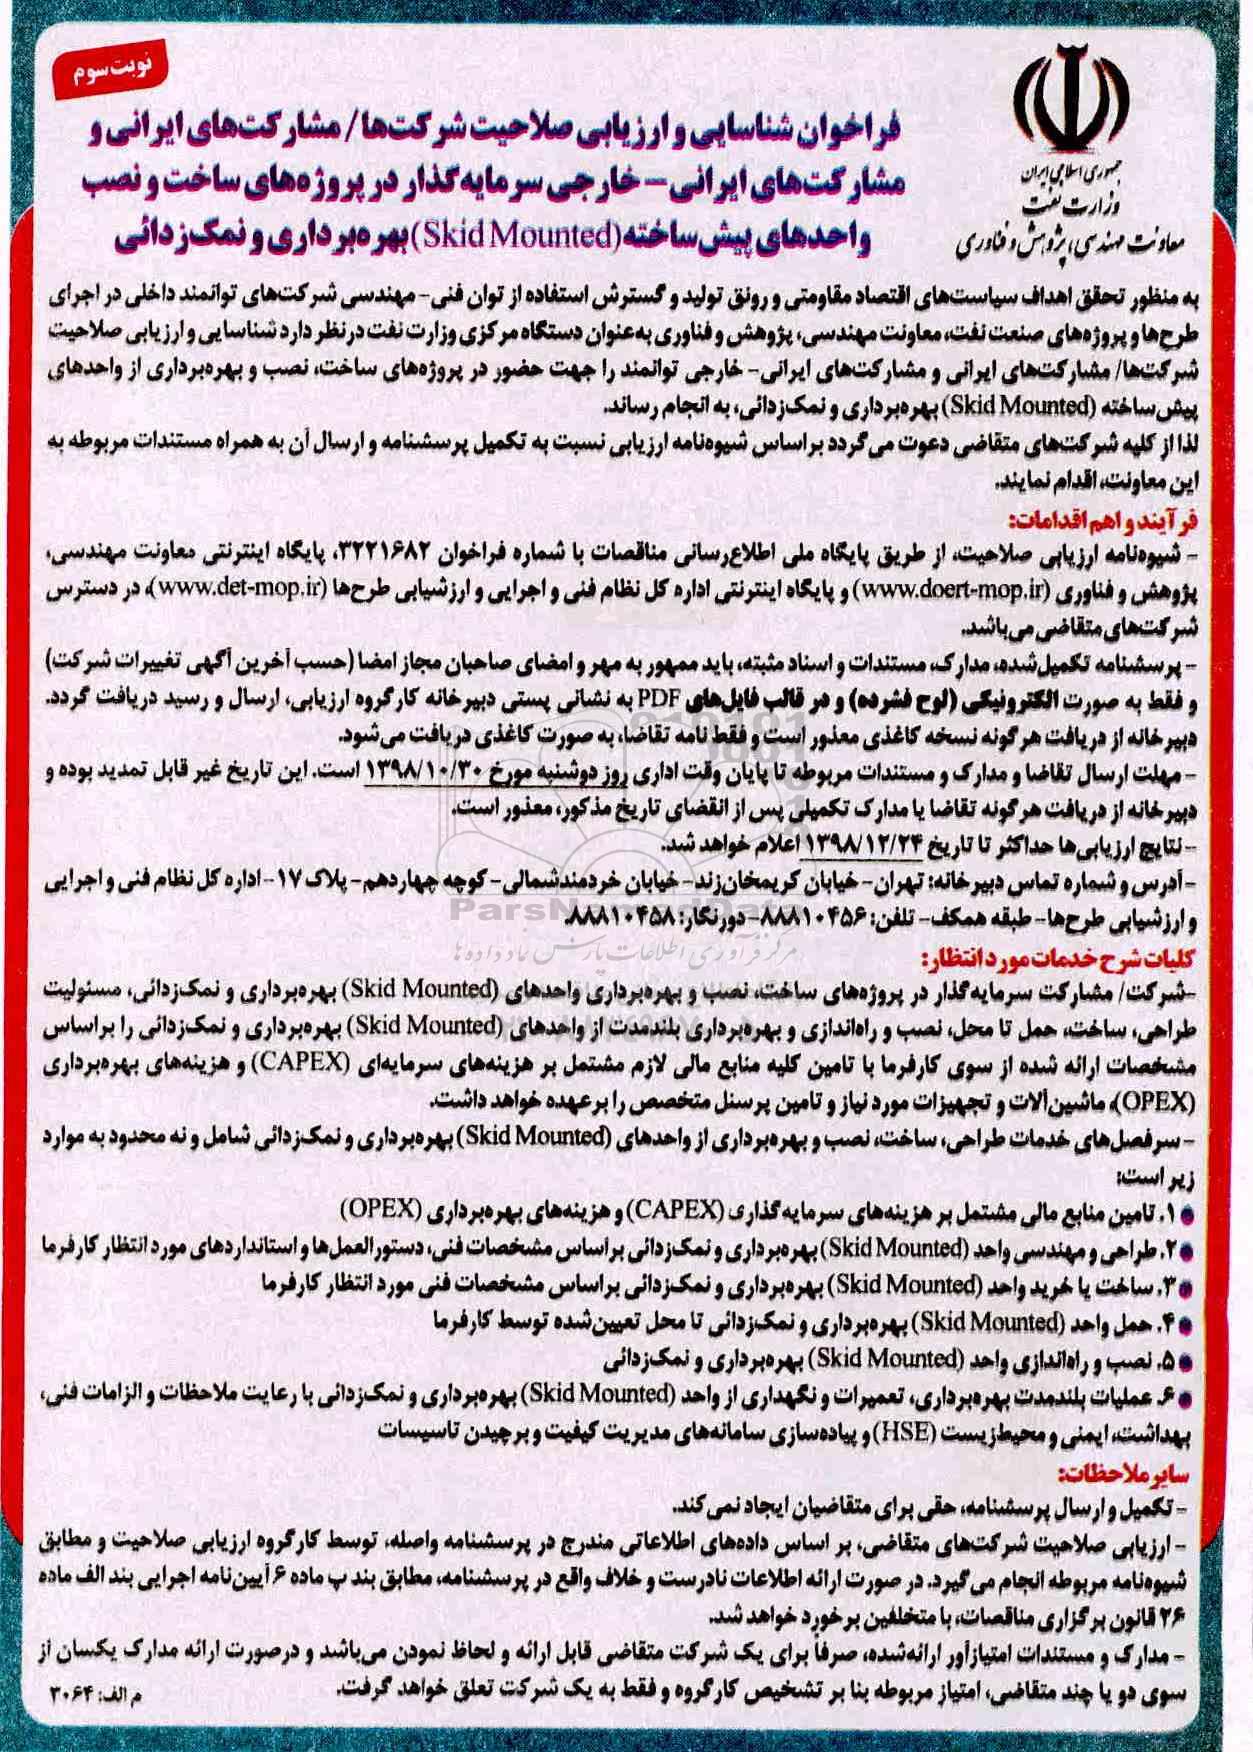 نوبت سوم
جمهوری اسلامی ایران
وزارت نفت
معاونت مهندسی، پژوهش و فناوری
فراخوان شناسایی و ارزیابی صلاحیت شرکت‌ها/ مشارکت‌های ایرانی و
مشارکت‌های ایرانی – خارجی سرمایه‌گذار در پروژه‌های ساخت و نصب
واحدهای پیش‌ساخته (Skid Mounted) بهره‌برداری و نمک‌زدائی
به منظور تحقق اهداف سیاست‌های اقتصاد مقاومتی و رونق تولید و گسترش استفاده از توان فنی- مهندسی شرکت‌های توانمند داخلی در اجرای
طرح‌ها و پروژه‌های صنعت نفت، معاونت مهندسی، پژوهش و فناوری به‌عنوان دستگاه مرکزی وزارت نفت در نظر دارد شناسایی و ارزیابی صلاحیت
شرکت‌ها/ مشارکت‌های ایرانی و مشارکت‌های ایرانی- خارجی توانمند را جهت حضور در پروژه‌های ساخت، نصب و بهره‌برداری از واحدهای
پیش‌ساخته (Skid Mounted) بهره‌برداری و نمک‌زدائی، به انجام رساند.
لذا از کلیه شرکت‌های متقاضی دعوت می‌گردد براساس شیوه‌نامه ارزیابی نسبت به تکمیل پرسشنامه و ارسال آن به همراه مستندات مربوطه به
این معاونت، اقدام نمایند.
فرآیند و اهم اقدامات:
- شیوه‌نامه ارزیابی صلاحیت، از طریق پایگاه ملی اطلاع‌رسانی مناقصات با شماره فراخوان ۳۲۲۱۶۸۲، پایگاه اینترنتی معاونت مهندسی،
پژوهش و فناوری (www.doert-mop.ir) و پایگاه اینترنتی اداره کل نظام فنی و اجرایی و ارزشیابی طرح‌ها (www.det-mop.ir)، در دسترس
شرکت‌های متقاضی می‌باشد.
- پرسشنامه تکمیل‌شده، مدارک، مستندات و اسناد مثبته، باید ممهور به مهر و امضای صاحبان مجاز امضا (حسب آخرین آگهی تغییرات شرکت)
و فقط به صورت الکترونیکی (لوح فشرده) و در قالب فایل‌های PDF به نشانی پستی دبیرخانه کارگروه ارزیابی، ارسال و رسید دریافت گردد.
دبیرخانه از دریافت هرگونه نسخه کاغذی معذور است و فقط نامه تقاضا، به صورت کاغذی دریافت می‌شود.
- مهلت ارسال تقاضا و مدارک و مستندات مربوطه تا پایان وقت اداری روز دوشنبه مورخ ۱۳۹۸/۱۰/۳۰ است. این تاریخ غیر قابل تمدید بوده و
دبیرخانه از دریافت هرگونه تقاضا یا مدارک تکمیلی پس از انقضای تاریخ مذکور، معذور است.
- نتایج ارزیابی‌ها حداکثر تا تاریخ ۱۳۹۸/۱۲/۲۴ اعلام خواهد شد.
- آدرس و شماره تماس دبیرخانه: تهران- خیابان کریمخان‌زند- خیابان خردمندشمالی- کوچه چهاردهم- پلاک ۱۷- اداره کل نظام فنی و اجرایی
و ارزشیابی طرح‌ها- طبقه همکف- تلفن: ۸۸۸۱۰۴۵۶- دورنگار: ۸۸۸۱۰۴۵۸.
ParsNamadData
مرکز فرآوری اطلاعات پارس نماد داده‌ها
کلیات شرح خدمات مورد انتظار:
-شرکت/ مشارکت سرمایه‌گذار در پروژه‌های ساخت، نصب و بهره‌برداری واحدهای (Skid Mounted) بهره‌برداری و نمک‌زدائی، مسئولیت
طراحی، ساخت، حمل تا محل، نصب و راه‌اندازی و بهره‌برداری بلندمدت از واحدهای (Skid Mounted) بهره‌برداری و نمک‌زدائی را براساس
مشخصات ارائه شده از سوی کارفرما با تامین کلیه منابع مالی لازم مشتمل بر هزینه‌های سرمایه‌ای (CAPEX) و هزینه‌های بهره‌برداری
(OPEX)، ماشین‌آلات و تجهیزات مورد نیاز و تامین پرسنل متخصص را برعهده خواهد داشت.
- سرفصل‌های خدمات طراحی، ساخت، نصب و بهره‌برداری از واحدهای (Skid Mounted) بهره‌برداری و نمک‌زدائی شامل و نه محدود به موارد
زیر است:
۱. تامین منابع مالی مشتمل بر هزینه‌های سرمایه‌گذاری (CAPEX) و هزینه‌های بهره‌برداری (OPEX)
۲. طراحی و مهندسی واحد (Skid Mounted) بهره‌برداری و نمک‌زدائی براساس مشخصات فنی، دستورالعمل‌ها و استانداردهای مورد انتظار کارفرما
۳. ساخت یا خرید واحد (Skid Mounted) بهره‌برداری و نمک‌زدائی براساس مشخصات فنی مورد انتظار کارفرما
۴. حمل واحد (Skid Mounted) بهره‌برداری و نمک‌زدائی تا محل تعیین‌شده توسط کارفرما
۵. نصب و راه‌اندازی واحد (Skid Mounted) بهره‌برداری و نمک‌زدائی
۶. عملیات بلندمدت بهره‌برداری، تعمیرات و نگهداری از واحد (Skid Mounted) بهره‌برداری و نمک‌زدائی با رعایت ملاحظات و الزامات فنی،
بهداشت، ایمنی و محیط‌زیست (HSE) و پیاده‌سازی سامانه‌های مدیریت کیفیت و برچیدن تاسیسات
سایر ملاحظات:
- تکمیل و ارسال پرسشنامه، حقی برای متقاضیان ایجاد نمی‌کند.
- ارزیابی صلاحیت شرکت‌های متقاضی، بر اساس داده‌های اطلاعاتی مندرج در پرسشنامه واصله، توسط کارگروه ارزیابی صلاحیت و مطابق
شیوه‌نامه مربوطه انجام می‌گیرد. در صورت ارائه اطلاعات نادرست و خلاف واقع در پرسشنامه، مطابق بند پ ماده ۶ آیین‌نامه اجرایی بند الف ماده
۲۶ قانون برگزاری مناقصات، با متخلفین برخورد خواهد شد.
- مدارک و مستندات امتیازآور ارائه‌شده، صرفاً برای یک شرکت متقاضی قابل ارائه و لحاظ نمودن می‌باشد و درصورت ارائه مدارک یکسان از
سوی دو یا چند متقاضی، امتیاز مربوطه بنا بر تشخیص کارگروه و فقط به یک شرکت تعلق خواهد گرفت.
م الف: ۳۰۶۴